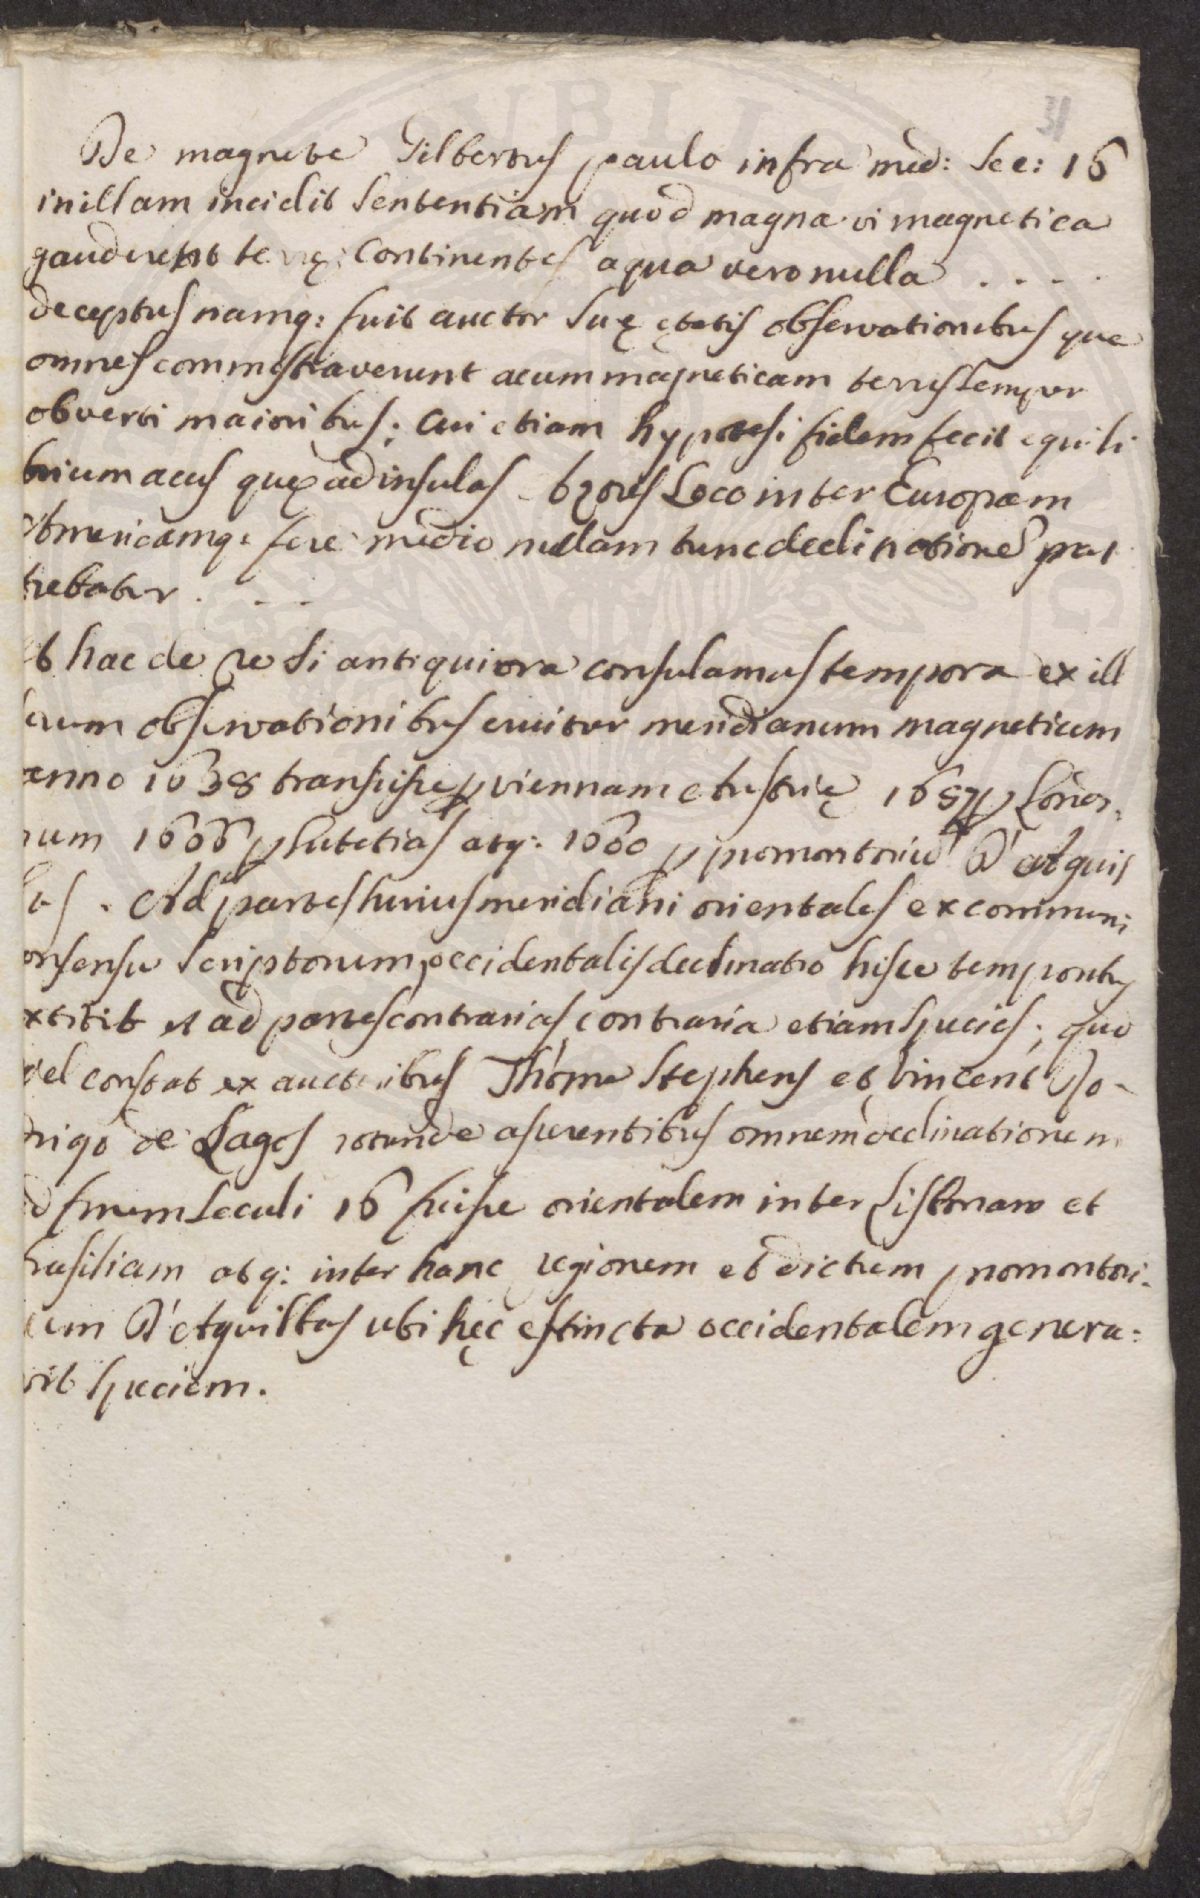 31
De magnete Gilbertus paulo infra med: sec: 16
in illam incidit sententiam quod magna vi magnetica
gauderent terrę continentes aqua vero nulla . . . .
deceptus namq: fuit auctor suę ętatis observationibus que
omnes commostraverunt acum magneticam terris semper
obverti maioribus; cui etiam hypotesi fidem fecit equili
brium acus quę ad insulas Azores loco inter Europam
Americamq: fere medio nullam tunc declinationē pa
tiebatur . . . .
Et hac de re si antiquiora consulamus tempora ex ill
observationibus eruitur meridianum magneticum
anno 1638 transisse p viennam Austrię 1657 p Londi
num 1666 p Lutetias atq: 1600 p promontoriū D'Aguil
Ad partes huius meridiani orientales ex communi
onsensu scriptorum occidentalis declinatio hisce temporibus
xtitit et ad partes contrarias contraria etiam species; quo
vel constat ex auctoribus Thoma Stephens et Vincent Ro
rigo de Lagos rotunde asserentibus omnem declinationem
d finem seculi 16 fuisse orientalem inter Lisbonam et
rasiliam atq: inter hanc regionem et dictum promontori
um D'Aguilhas ubi hęc extincta occidentalem genera:
rit speciem.